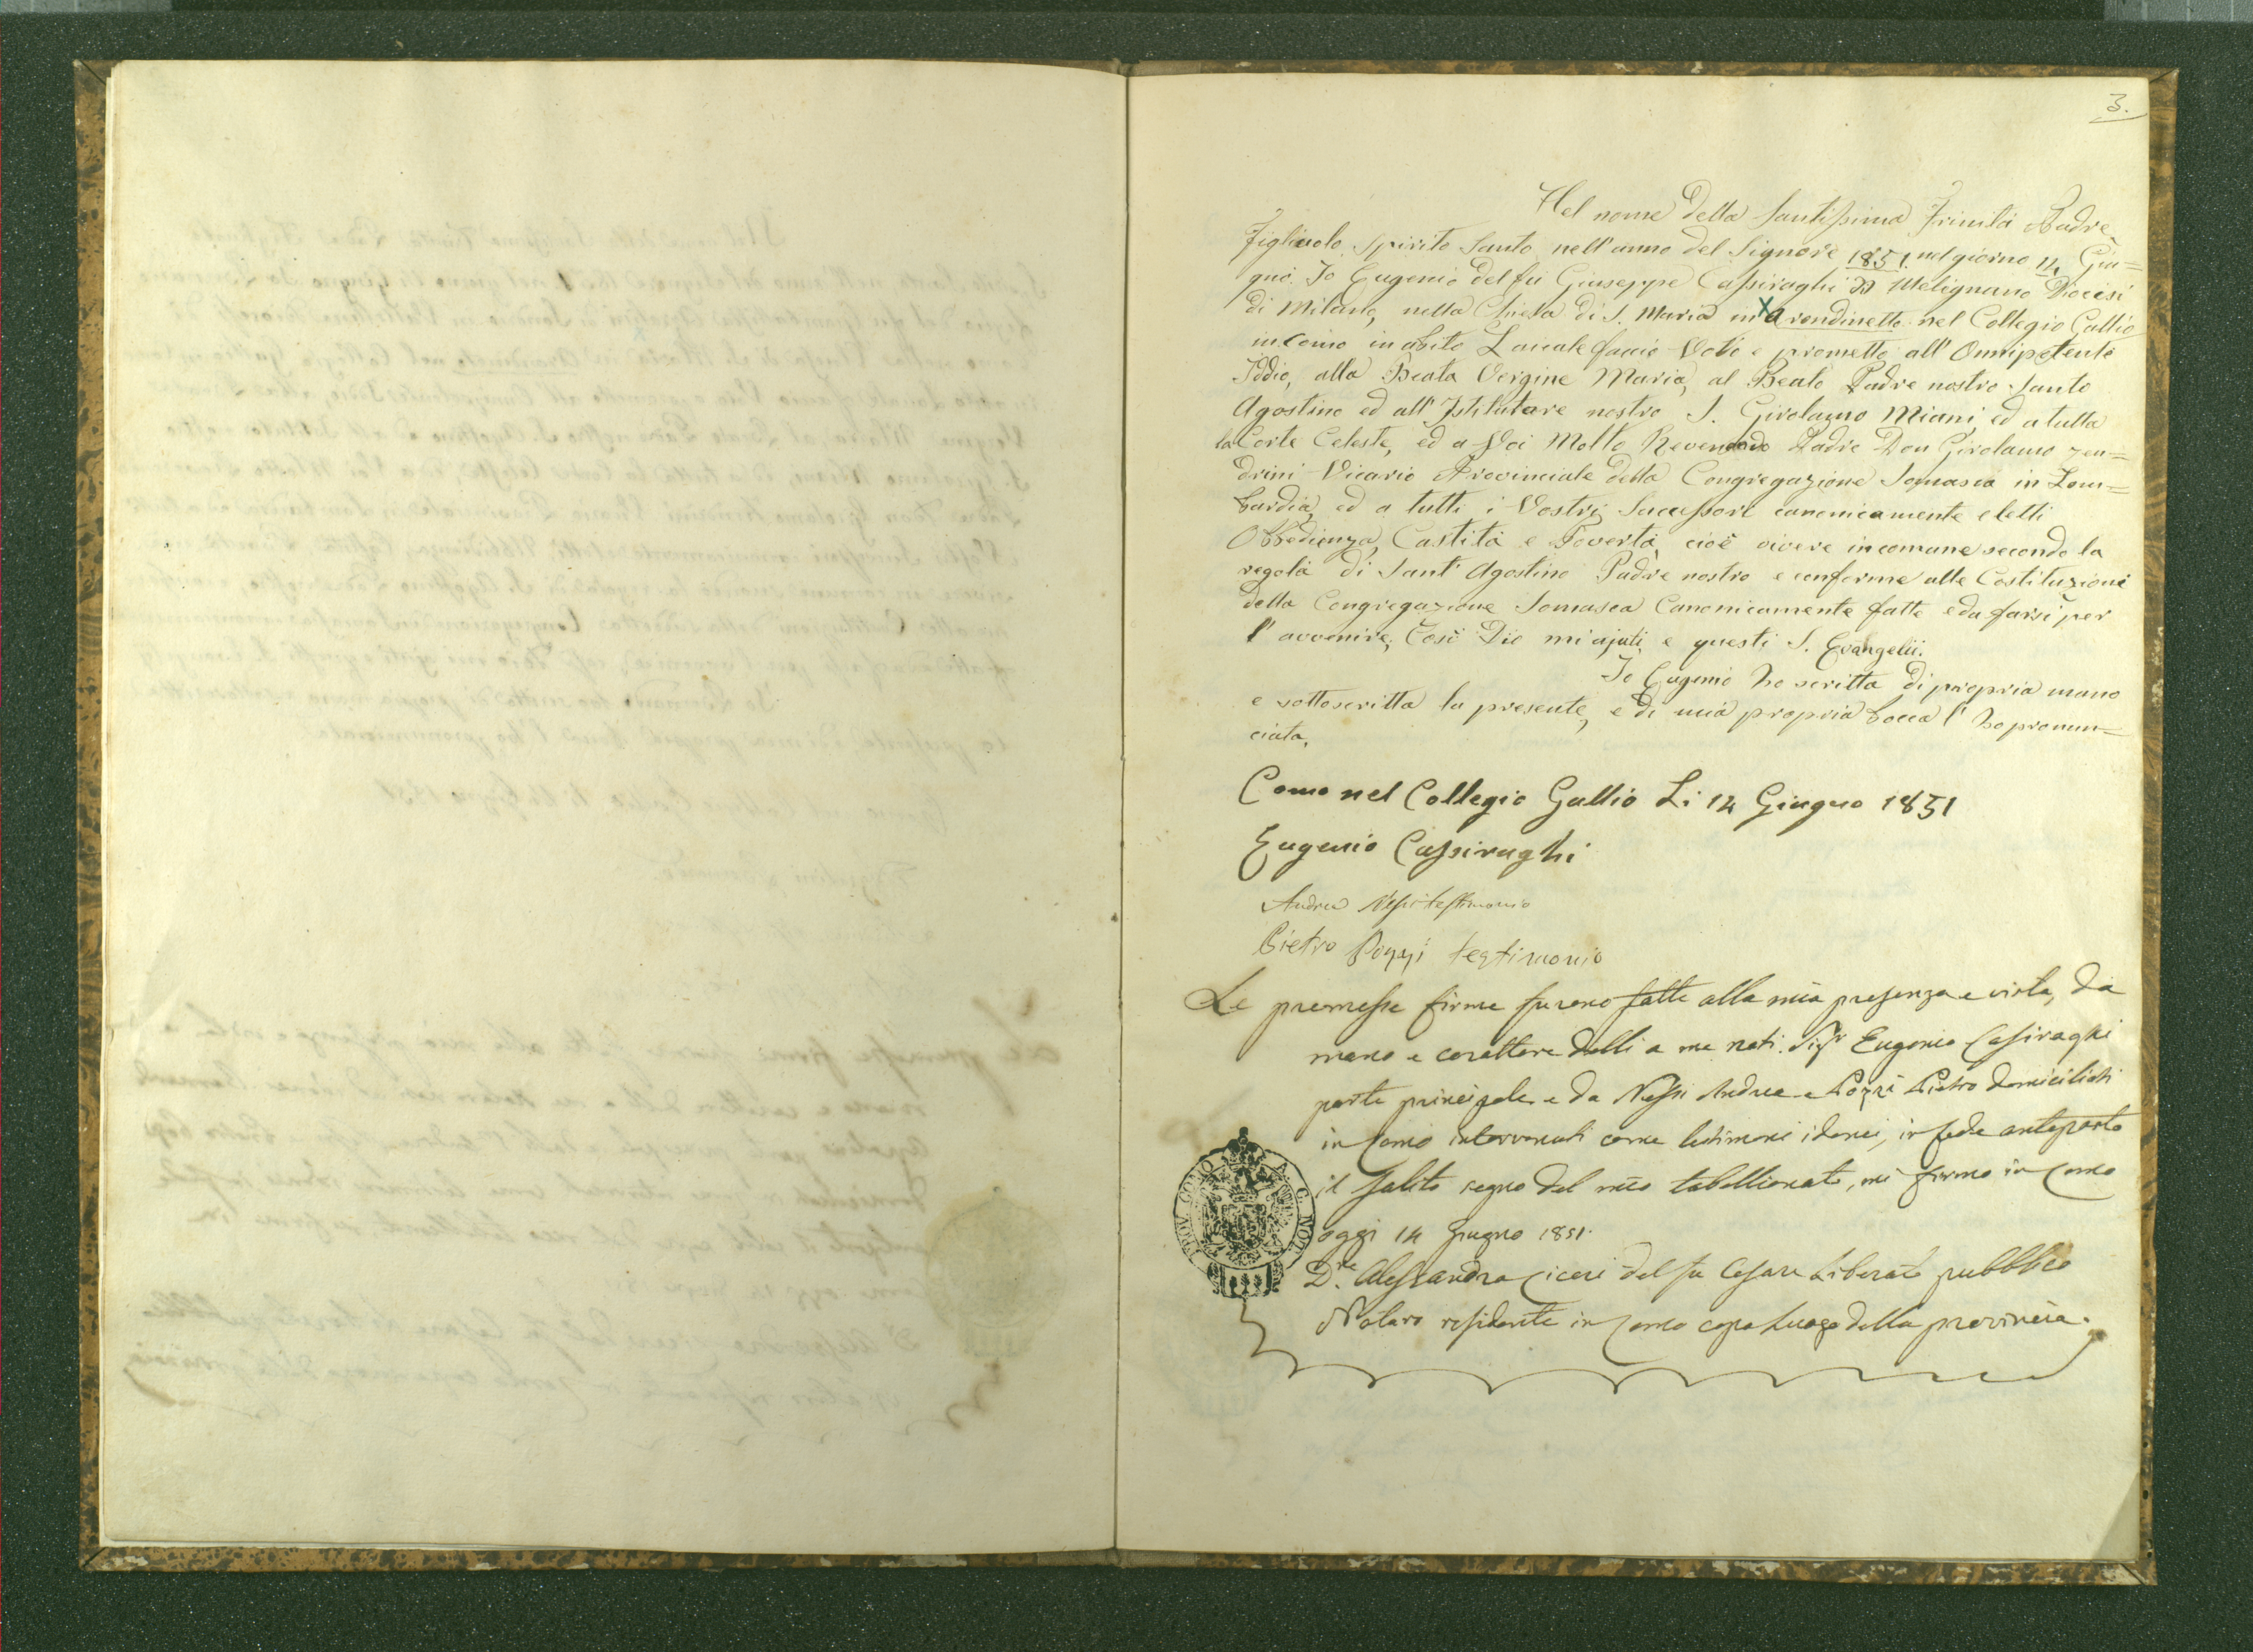 3.
Nel nome della Santissima Trinità Padre,
Figliuolo Spirito Santo nell'anno del Signore 1851. nel giorno 14 Giu=
gno. Io Eugenio del fu Giuseppe Cassiraghi di Melignano Diocesi
di Milano, nella Chiesa di S. Maria in X Arondinetto nel Collegio Gallio
in Como in abito Laicale faccio Voti e prometto all' Onnipotente
Iddio, alla Beata Vergine Maria, al Beato Padre nostro Santo
Agostino ed all' Istitutore nostro S. Girolamo Miani, ed a tutta
la Corte Celeste, ed a Voi Molto Reverendo Padre Don Girolamo Zen=
drini Vicario Provinciale della Congregazione Somasca in Lom=
bardia, ed a tutti i Vostri Successori canonicamente eletti
Obbedienza, Castità e Povertà, cioè vivere in comune secondo la
regola di Sant' Agostino Padre nostro e conforme alle Costituzioni
della Congregazione Somasca Canonicamente fatte e da farsi per
l' avvenire; Così Dio mi ajuti, e questi S. Evangelii.
Io Eugenio ho scritta di propria mano
e sottoscritta la presente, e di mia propria bocca l' ho pronun=
ciata.
Como nel Collegio Gallio Li 14 Giugno 1851
Eugenio Cassiraghi
Andrea Nessi testimonio
Pietro Pozzi testimonio
Le premesse firme furono fatte alla mia presenza e vista, da
mano e carattere delli a me noti Sigr Eugenio Casiraghi
parte principale e da Nessi Andrea e Pozzi Pietro domiciliati
in Como intervenuti come testimoni idonei, in fede anteposto
il solito segno del mio tabellionato, mi firmo in Como
oggi 14 Giugno 1851.
D.re Alessandro Ciceri del fu Cesare Liberato pubblico
Notaro residente in Como capo luogo della provincia.
PROV. COMO A. C. NOT.